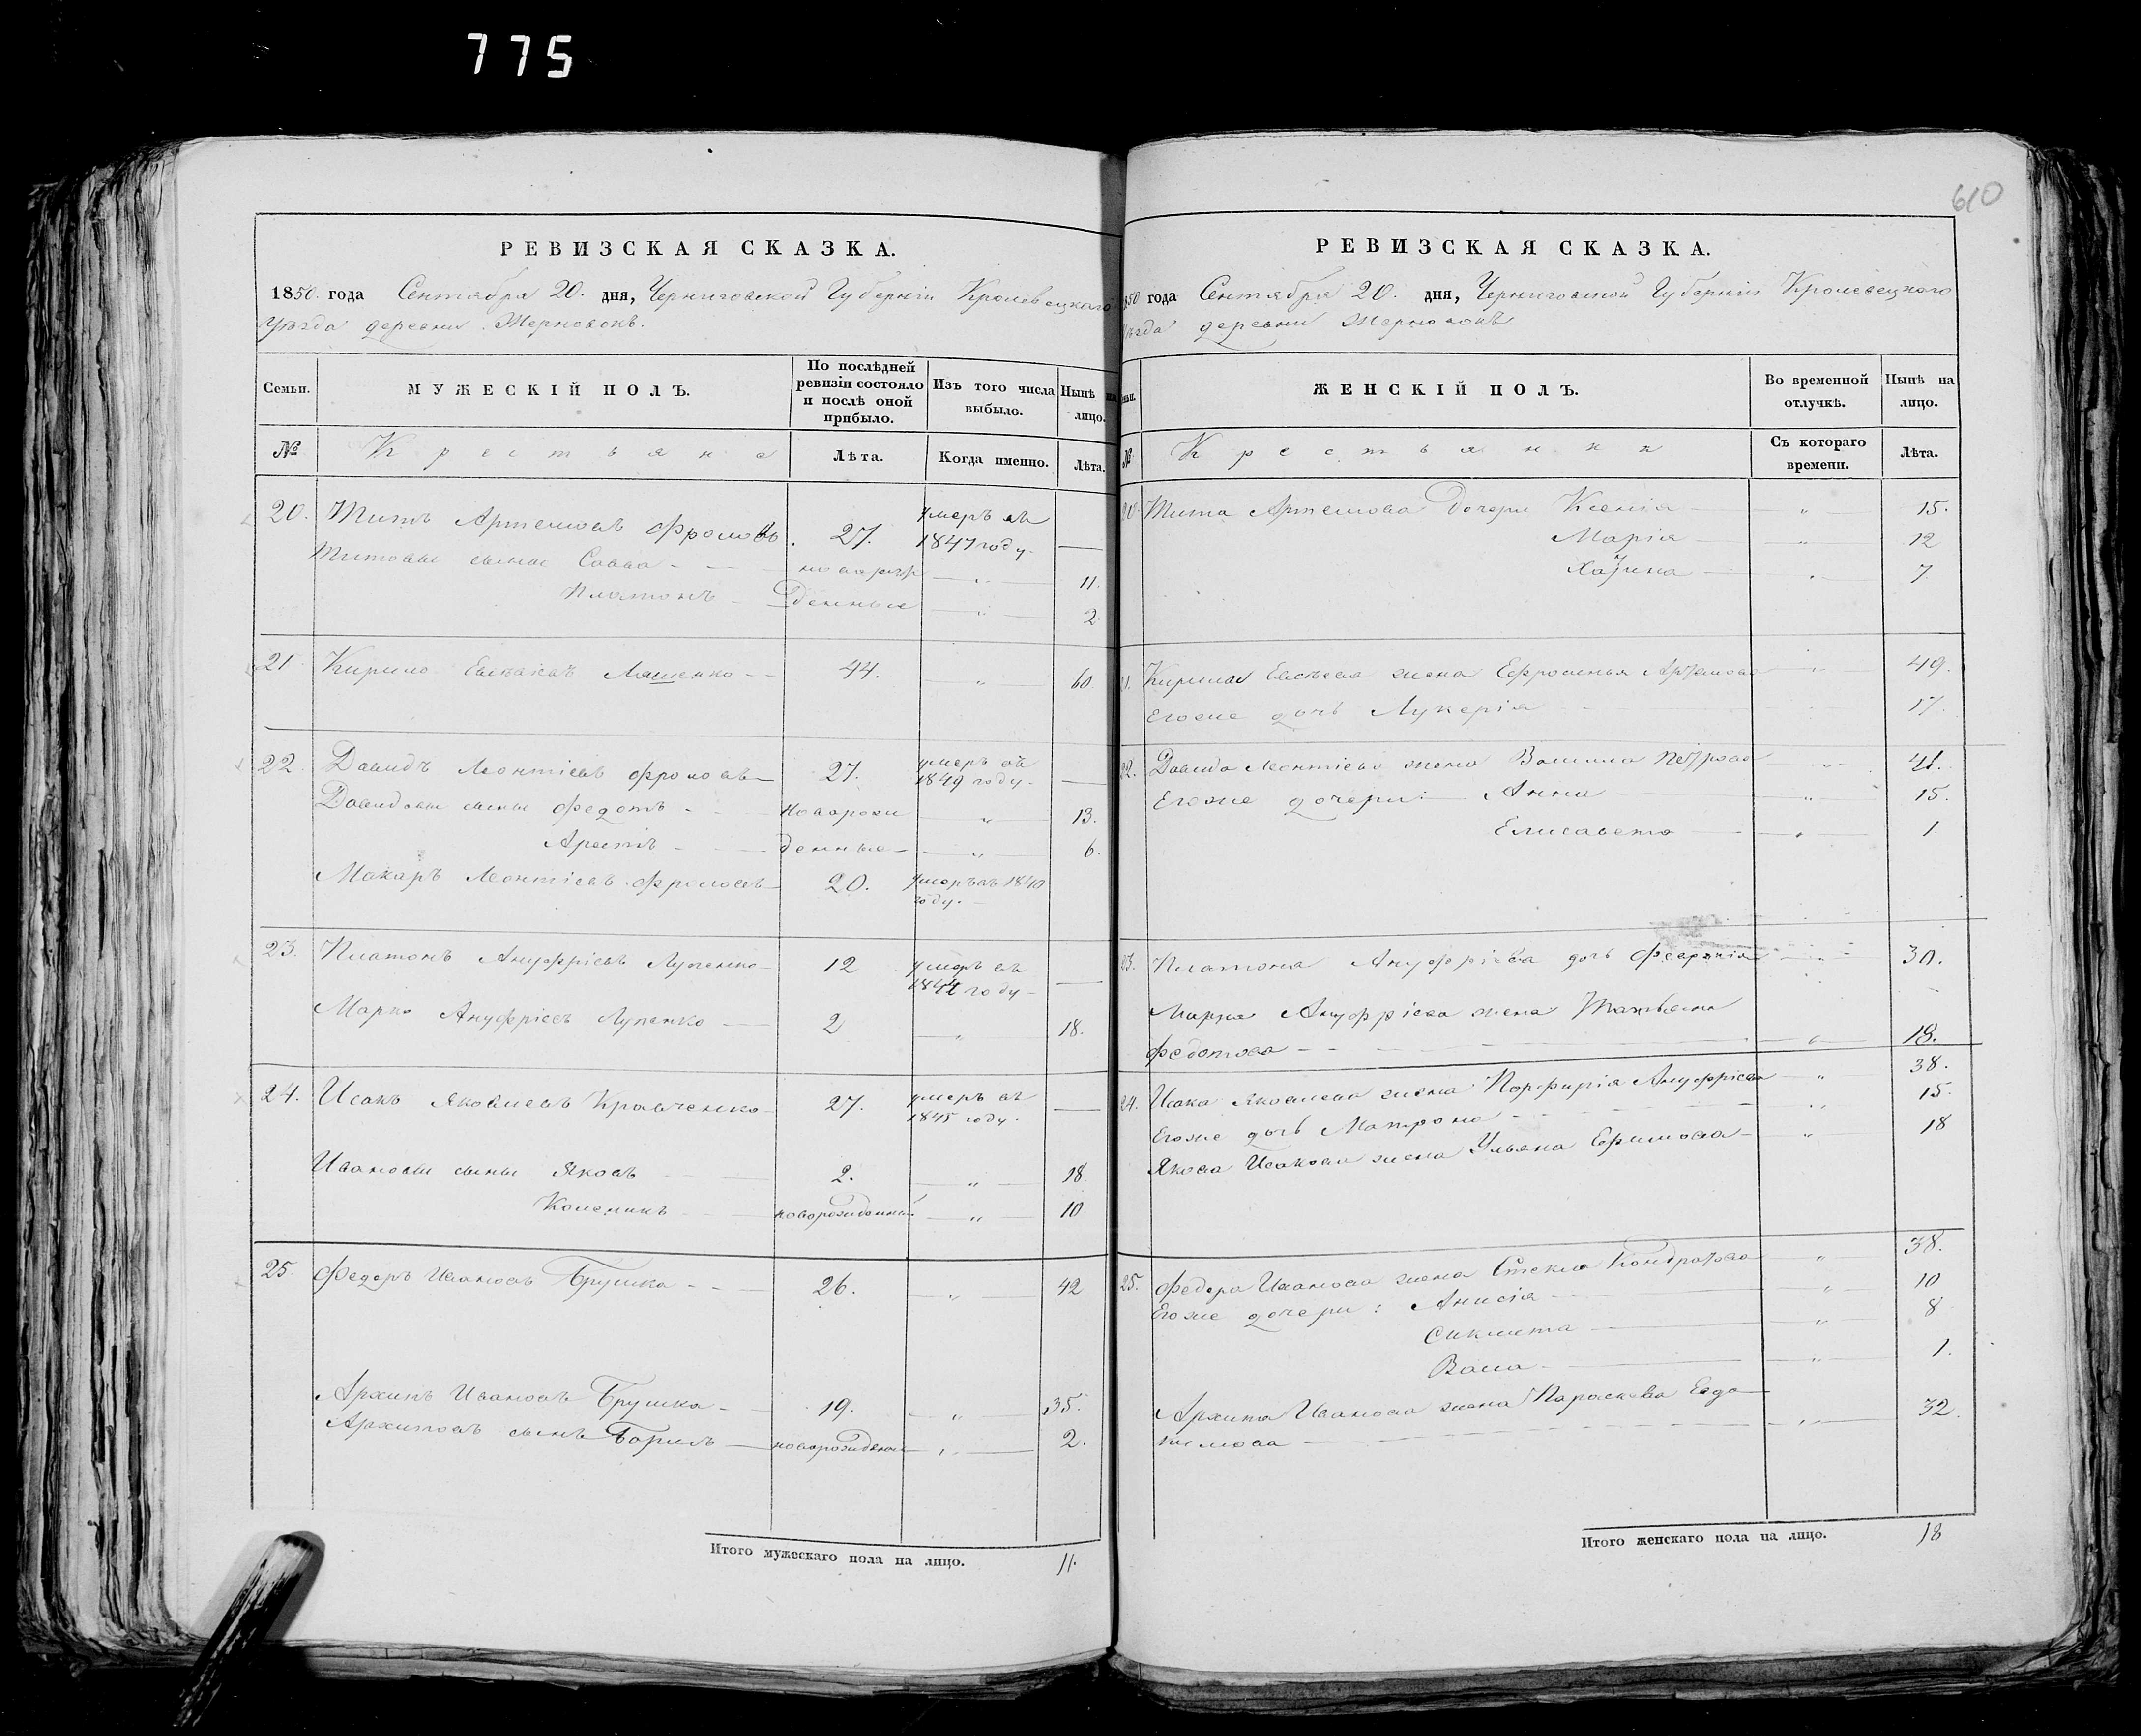 775
610
РЕВИЗСКАЯ СКАЗКА.
1850 года Сентября 20. дня, Черниговской Губерніи Кролевецкаго
Уѣзда деревни Жерновокъ.
Семьи.
МУЖЕСКІЙ ПОЛЪ.
По послѣдней ревизіи состояло и послѣ оной прибыло.
Изъ того числа выбыло.
Нынѣ на лицо.
№
Крестьяне
Лѣта.
Когда именно.
Лѣта.
20. Титъ Артемовъ Фроловъ. 27. умеръ въ 1847 году. —
Титовы сыны Савва - - новорож „ 11.
Платонъ - денные „ 2
21 Кирило Евсѣевъ Ляшенко - - 44. „ 60.
22 Давидъ Леонтіевъ Фроловъ 27. умеръ въ 1849 году. —
Давидовы сыны Федотъ - новорож „ 13.
- денные „ 6.
Макаръ Леонтіевъ Фроловъ 20. умеръ въ 1840 году.
23. Платонъ Ануфріевъ 12 умеръ въ году —
Марко Ануфріевъ 2 „ 18.
24. Исакъ Яковлевъ Кравченко 27. умеръ въ 1845 году. —
сыны Яковъ 2. „ 18.
новорожденный „ 10
25 Федоръ Ивановъ Брушка - - 26. „ 42
Архипъ Ивановъ Брушка - 19. „ 35.
Архиповъ сынъ новорожден „ 2.
Итого мужескаго пола на лицо. 11.
РЕВИЗСКАЯ СКАЗКА.
1850 года Сентября 20. дня, Черниговской Губерніи Кролевецкаго
Уѣзда деревни Жерновокъ
Семьи.
ЖЕНСКІЙ ПОЛЪ.
Во временной отлучкѣ.
Нынѣ на лицо.
№
Крестьянки
Съ котораго времени.
Лѣта.
20. Тита Артемова дочери Ксенія „ 15.
Марія „ 12
„ 7.
21. Кирила Евсѣева жена Ефросинья Артемова „ 49.
Егоже дочь Лукерія 17.
22. Давида Леонтіева жена Петрова „ 41.
Егоже дочери: Анна „ 15.
Елисавета „ 1
23. Платона Ануфріева дочь „ 30.
Марка Ануфріева жена Татьяна
Федотова - - „ 18.
24. Исака Яковлева жена Порфирія Ануфріева „ 38.
Егоже дочь Матрона „ 15.
Якова Исакова жена Ульяна Ефимова „ 18
25. Федора Иванова жена Стекла Кондратова „ 38.
Егоже дочери: Анисія „ 10
„ 8
„ 1.
Архипа Иванова жена Параскева Евдо-
кимова „ 32.
Итого женскаго пола на лицо. 18